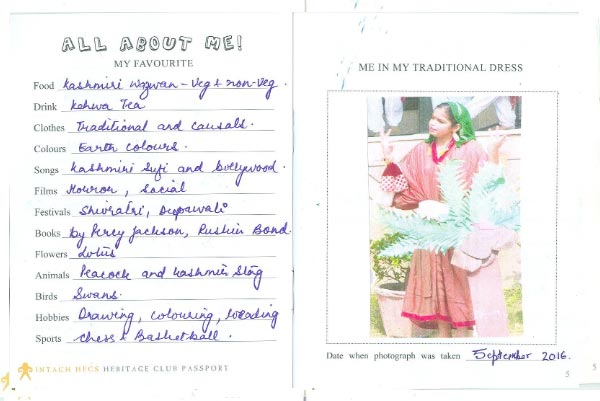 ALL ABOUT ME!
MY FAVOURITE
Food Kashmiri wazwan - Veg + non-Veg.
Drink Kehwa Tea
Clothes Traditional and causals.
Colours Earth colours.
Songs Kashmiri Sufi and bollywood.
Films Horror, Social
Festivals Shivratri, Deepawali
Books by Percy Jackson, Ruskin Bond.
Flowers Lotus
Animals Peacock and Kashmir Stag
Birds Swans.
Hobbies Drawing, colouring, reading
Sports chess & Basketball.
INTACH HECS HERITAGE CLUB PASSPORT
ME IN MY TRADITIONAL DRESS
Date when photograph was taken September 2016.
5
5